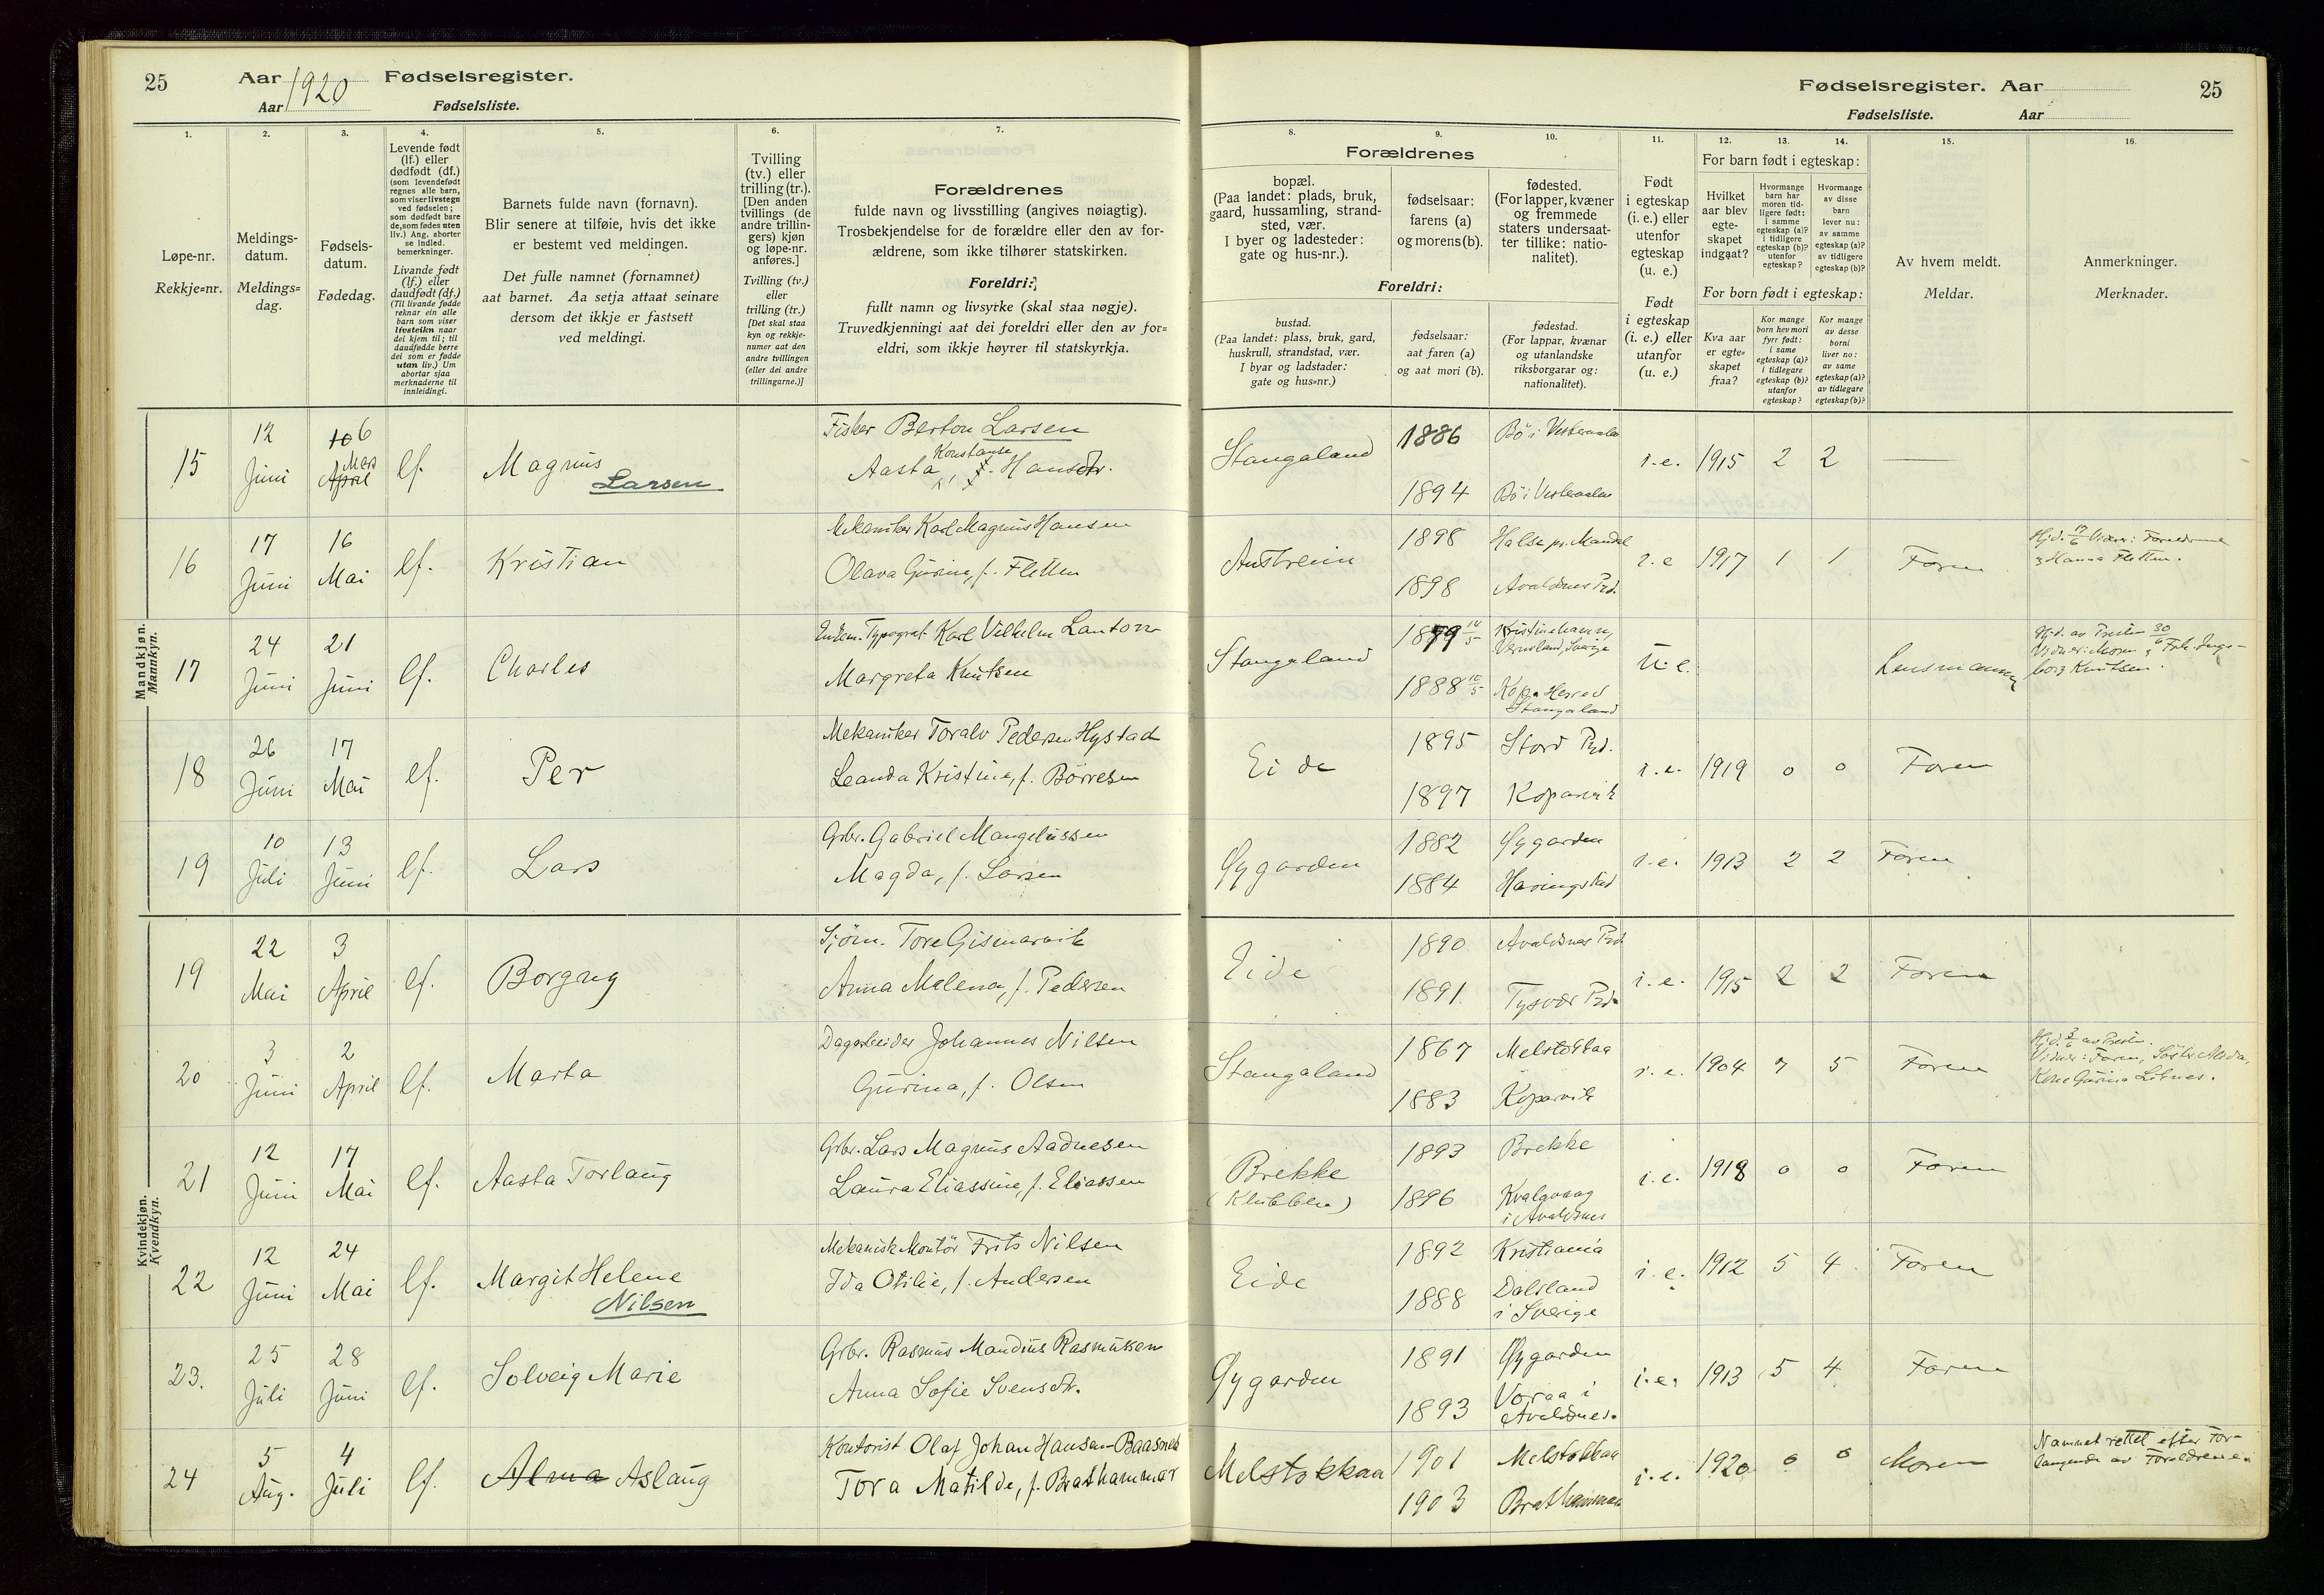 25 Aar 1920 Fødselsregister.
Aar Fødselsliste.
1. 2. 3. 4. 5. 6. 7.
Løpe-nr.
Rekkje=nr.
Meldings-
datum.
Meldings=
dag.
Fødsels-
datum.
Fødedag.
Levende født
(lf.) eller
dødfødt (df.)
(som levendefødt
regnes alle barn,
som viser livstegn
ved fødselen;
som dødfødt bare
de, som fødes uten
liv.) Ang. aborter
se indled.
bemerkninger.
Livande født
(lf.) eller
daudfødt (df.)
(Til livande fødde
reknar ein alle
barn som viser
livsteikn naar
dei kjem til; til
daudfødde berre
dei som er fødde
utan liv.) Um
abortar sjaa
merknaderne til
innleidingi.
Barnets fulde navn (fornavn).
Blir senere at tilføie, hvis det ikke
er bestemt ved meldingen.
Det fulle namnet (fornamnet)
aat barnet. Aa setja attaat seinare
dersom det ikkje er fastsett
ved meldingi.
Tvilling
(tv.) eller
trilling (tr.).
[Den anden
tvillings (de
andre trillin-
gers) kjøn
og løpe-nr.
anføres.]
Tvilling (tv.)
eller
trilling (tr.)
[Det skal staa
kyn og rekkje-
numer aat den
andre tvillingen
(eller dei andre
trillingarne.)]
Forældrenes
fulde navn og livsstilling (angives nøiagtig).
Trosbekjendelse for de forældre eller den av for-
ældrene, som ikke tilhører statskirken.
Foreldri:
fullt namn og livsyrke (skal staa nøgje).
Truvedkjenningi aat dei foreldri eller den av for=
eldri, som ikkje høyrer til statskyrkja.
Mandkjøn.
Mannkyn.
15 12 Juni 10 6 April Mars lf. Magnus Larsen
Fisker Berton Larsen
Aasta Konstanse f. Hansdtr.
16 17 Juni 16 Mai lf. Kristian
Mekaniker Karl Magnus Hansen
Olava Gurine, f. Fletten
17 24 Juni 21 Juni lf. Charles
Typograf Karl Vilhelm Lanton
Margreta Knutsen
18 26 Juni 17 Mai lf. Per
Mekaniker Toralv Pedersen Hystad
Leanda Kristine, f. Børresen
19 10 Juli 13 Juni lf. Lars
Grbr. Gabriel Mangelussen
Magda, f. Larsen
Kvindekjøn.
Kvendkyn.
19 22 Mai 3 April lf. Borgny
Sjøm. Tore Gismarvik
Anna Melena, f. Pedersen
20 3 Juni 2 April lf. Marta
Dagarbeider Johannes Nilsen
Gurina, f. Olsen
21 12 Juni 17 Mai lf. Aasta Torlaug
Grbr. Lars Magnus Aadnesen
Laura Eliassine, f. Eliassen
22 12 Juni 24 Mai lf. Margit Helene Nilsen
Mekanisk Montör Frits Nilsen
Ida Otilie, f. Andersen
23. 25 Juli 28 Juni lf. Solveig Marie
Grbr. Rasmus Mandius Rasmussen
Anna Sofie Svensdtr.
24 5 Aug. 4 Juli lf. Alma Aslaug
Kontorist Olaf Johan Hansen Baasnes
Tora Matilde, f. Brathammar
Fødselsregister. Aar 25
Fødselsliste. Aar
8. 9. 10. 11. 12. 13. 14. 15. 16.
Forældrenes
bopæl.
(Paa landet: plads, bruk,
gaard, hussamling, strand-
sted, vær.
I byer og ladesteder:
gate og hus-nr.).
fødselsaar:
farens (a)
og morens (b).
fødested.
(For lapper, kvæner
og fremmede
staters undersaat-
ter tillike: natio-
nalitet).
Foreldri:
bustad.
(Paa landet: plass, bruk, gard,
huskrull, strandstad, vær.
I byar og ladstader:
gate og hus=nr.)
fødselsaar:
aat faren (a)
og aat mori (b).
fødestad.
(For lappar, kvænar
og utanlandske
riksborgarar og:
nationalitet).
Født
i egteskap
(i. e.) eller
utenfor
egteskap
(u. e.)
Født
i egteskap
(i. e.) eller
utanfor
(u. e.)
For barn født i egteskap:
Hvilket
aar blev
egte-
skapet
indgaat?
Hvormange
barn har
moren tid-
ligere født:
i samme
egteskap (a)?
i tidligere
egteskap (b)?
utenfor
egteskap?
Hvormange
av disse
barn
lever nu:
av samme
egteskap (a)?
av tidligere
egteskap (b)?
For born født i egteskap:
Kva aar
er egte=
skapet
fraa?
Kor mange
born hev mori
fyrr født:
i same
egteskap (a)?
i tidlegare
egteskap (b)?
utanfor
egteskap?
Kor mange
av desse
borni
liver no:
av same
egteskap (a)?
av tidlegare
egteskap (b)?
Av hvem meldt.
Meldar.
Anmerkninger.
Merknader.
Stangaland 1886 Bö i Vesteraalen i.e. 1915 2 2 —
1894 Bö i Vesteraalen
Austreim 1898 Halse pr. Mandal i.e 1917 1 1 Faren
1898 Avaldsnes Prd.
Hjd. 17/6 Vidner: Foreldrene
Hanna Fletten.
Stangaland 1879 Kristinehamn,
Vermland, Sverige
1888 Kopa Herred
Stangaland
u.e. Lensmannen
Hjd. av Presten 30/6
Vidner: Moren Frk. Inge-
borg Knutsen.
Eide 1895 Stord Prd. i.e. 1919 0 0 Faren
1897 Kopervik
Øygarden 1882 Øygarden i.e. 1913 2 2 Faren
1884
Eide 1890 Avaldsnes Prd. i.e. 1915 2 2 Faren
1891. Tysvær Prd.
Stangaland 1867 Melstokkaa i.e. 1904 7 5 Faren
1883 Kopervik
Hjd. 3/6 av Presten.
Vidner: Faren, Söster
Kone Gurina
Brekke
(Klubben)
1893 Brekke i.e. 1918 0 0 Faren
1896 Kvalavaag
i Avaldsnes
Eide 1892 Kristiania i.e. 1912 5 4 Faren
1888 Dalsland
i Sverige
Øygarden 1891 Øygarden i.e. 1913 5 4 Faren
1893 Voraa i
Avaldsnes.
Melstokkaa 1901 Melstokkaa i.e. 1920 0 0 Moren
1903 Brathammar
Namnet rettet efter For-
langende av Foreldrene.